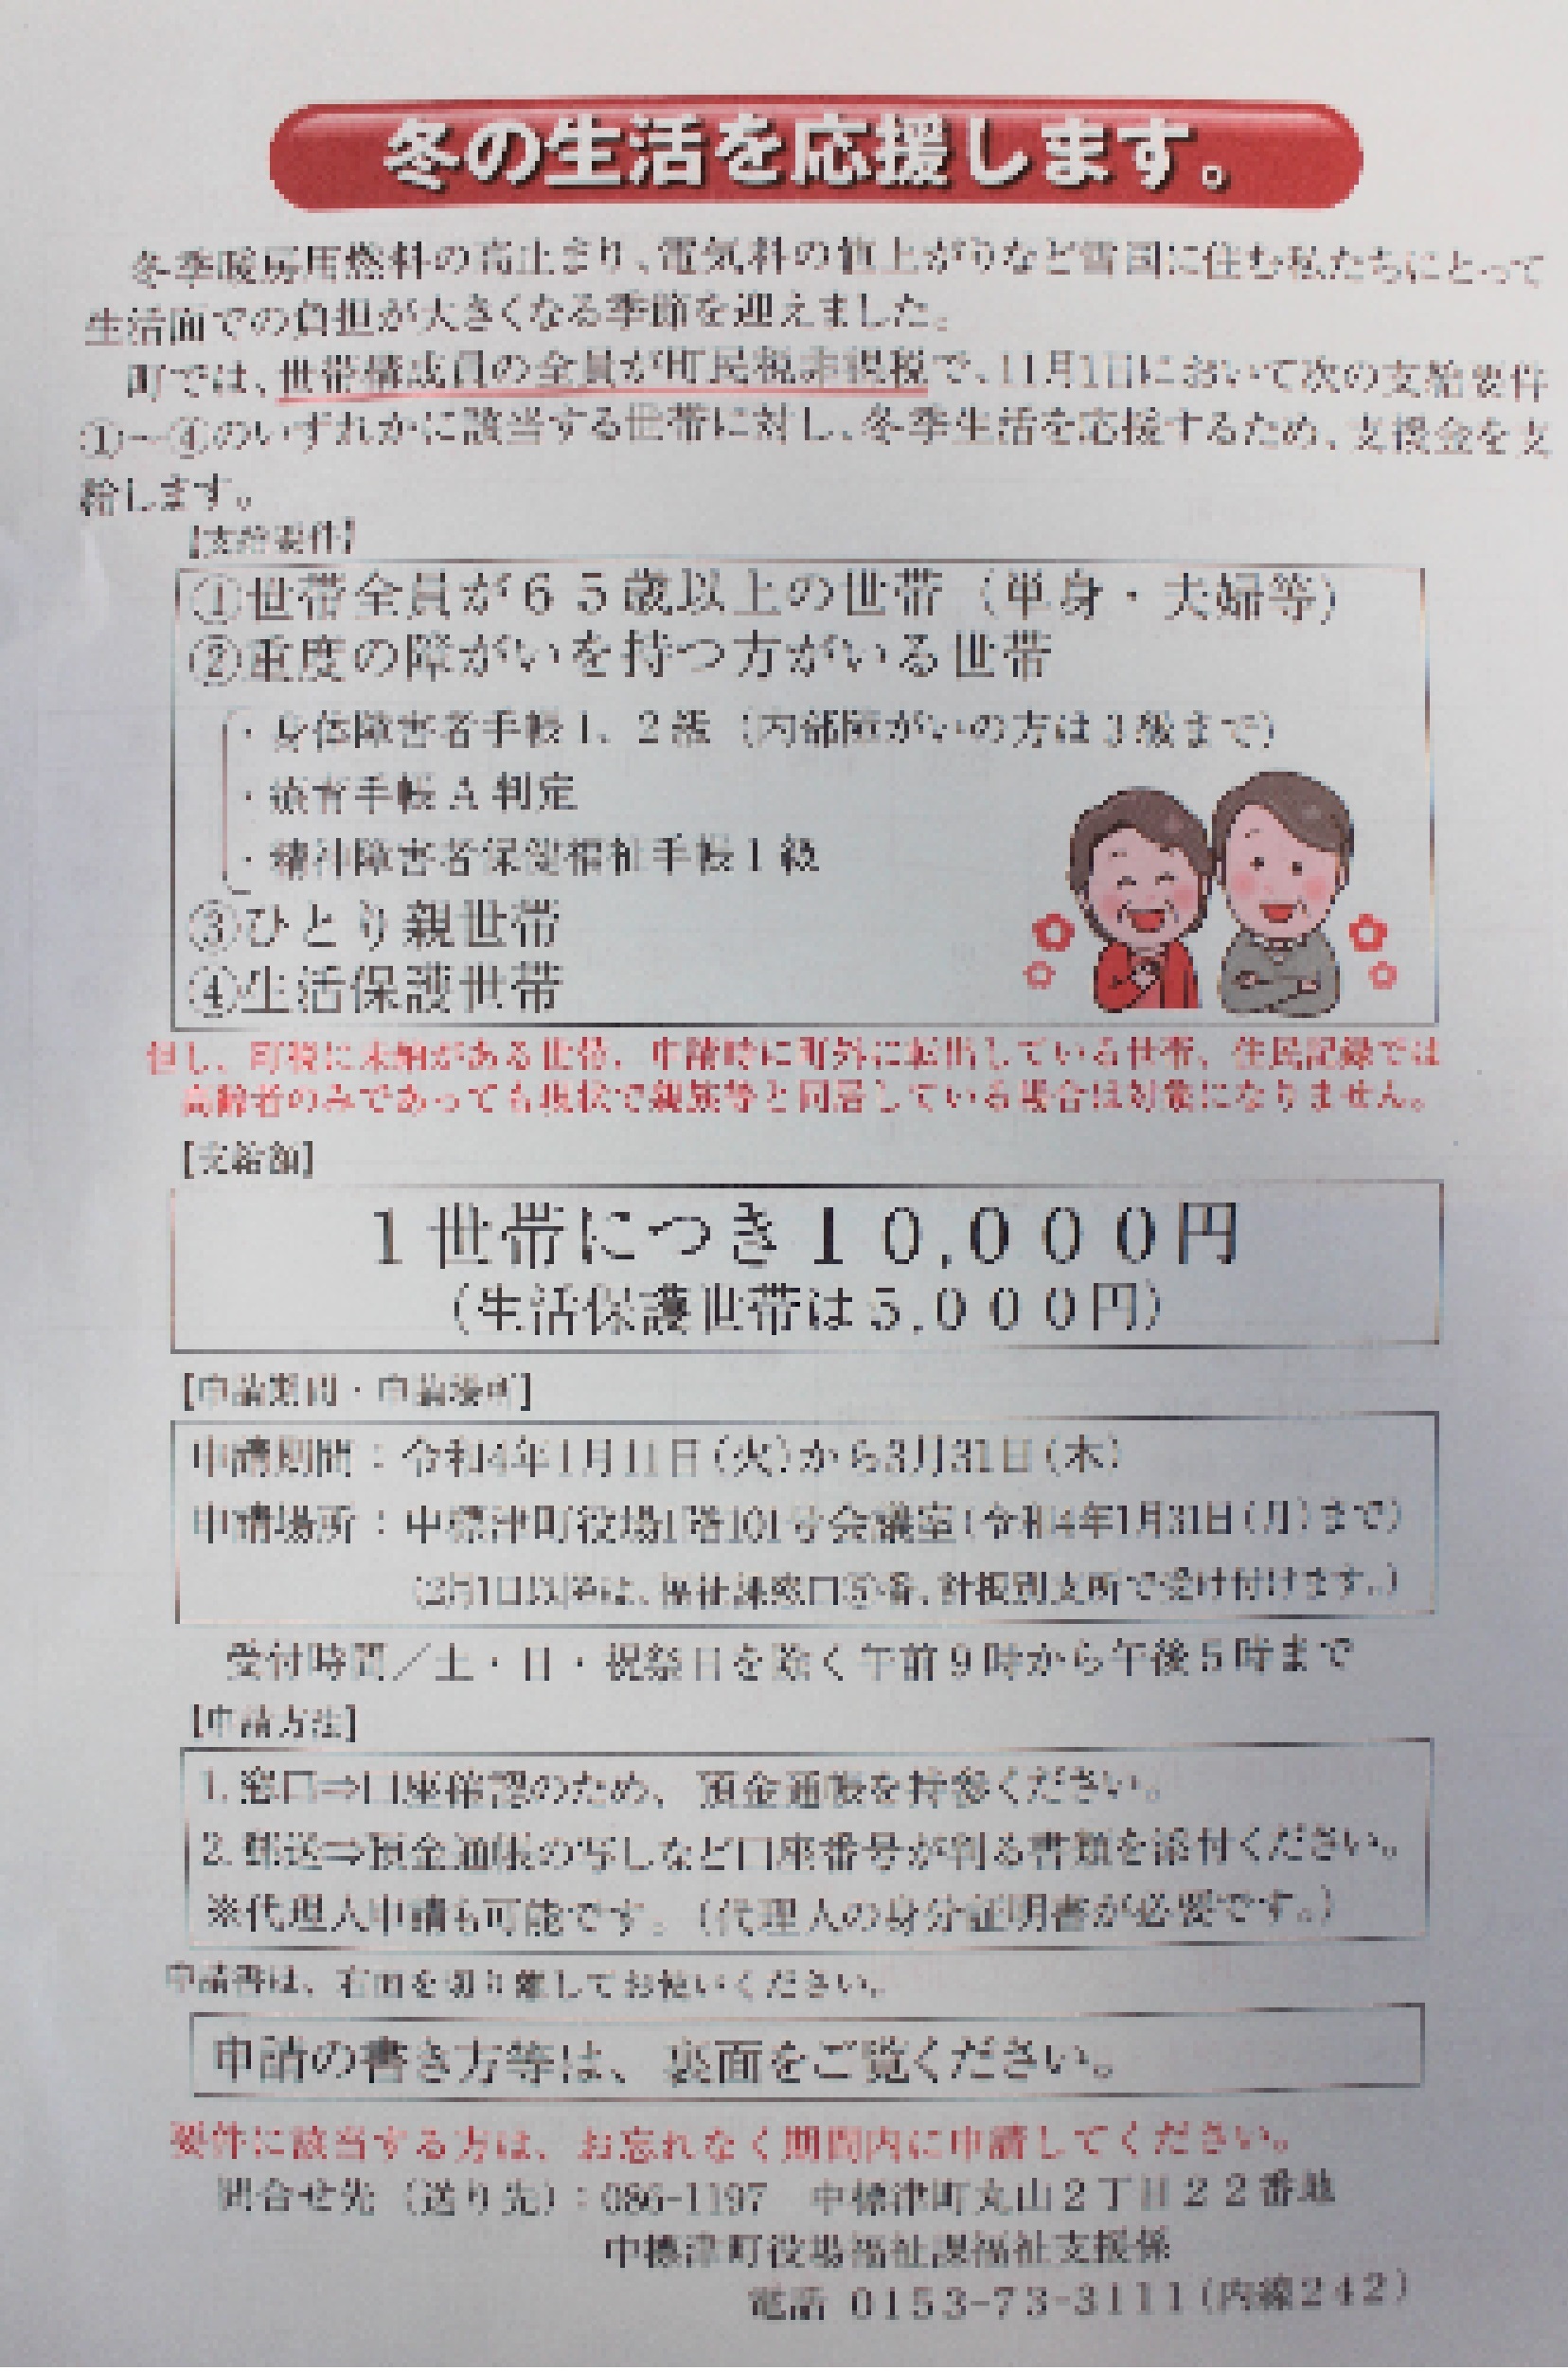 冬の生活を応援します。
冬季暖房用燃料の高止まり、電気料の値上がりなど雪国に住む私たちにとって
生活面での負担が大きくなる季節を迎えました。
町では、世帯構成員の全員が町民税非課税で、11月1日において次の支給要件
①～④のいずれかに該当する世帯に対し、冬季生活を応援するため、支援金を支
給します。
【支給要件】
①世帯全員が65歳以上の世帯（単身・夫婦等）
②重度の障がいを持つ方がいる世帯
・身体障害者手帳1、2級（内部障がいの方は3級まで）
・療育手帳A判定
・精神障害者保健福祉手帳1級
③ひとり親世帯
④生活保護世帯
但し、町税に未納がある世帯、申請時に町外に転出している世帯、住民記録では
高齢者のみであっても現状で親族等と同居している場合は対象になりません。
[支給額]
1世帯につき10,000円
（生活保護世帯は5,000円）
[申請期間・申請場所]
申請期間：令和4年1月11日(火)から3月31日(木)
申請場所：中標津町役場1階101号会議室(令和4年1月31日(月)まで)
(2月1日以降は、福祉課窓口⑤番、計根別支所で受け付けます。)
受付時間／土・日・祝祭日を除く午前9時から午後5時まで
[申請方法]
1.窓口⇒口座確認のため、預金通帳を持参ください。
2.郵送⇒預金通帳の写しなど口座番号が判る書類を添付ください。
※代理人申請も可能です。（代理人の身分証明書が必要です。）
申請書は、右面を切り離してお使いください。
申請の書き方等は、裏面をご覧ください。
要件に該当する方は、お忘れなく期間内に申請してください。
問合せ先（送り先）：086-1197　中標津町丸山2丁目22番地
中標津町役場福祉課福祉支援係
電話 0153-73-3111(内線242)